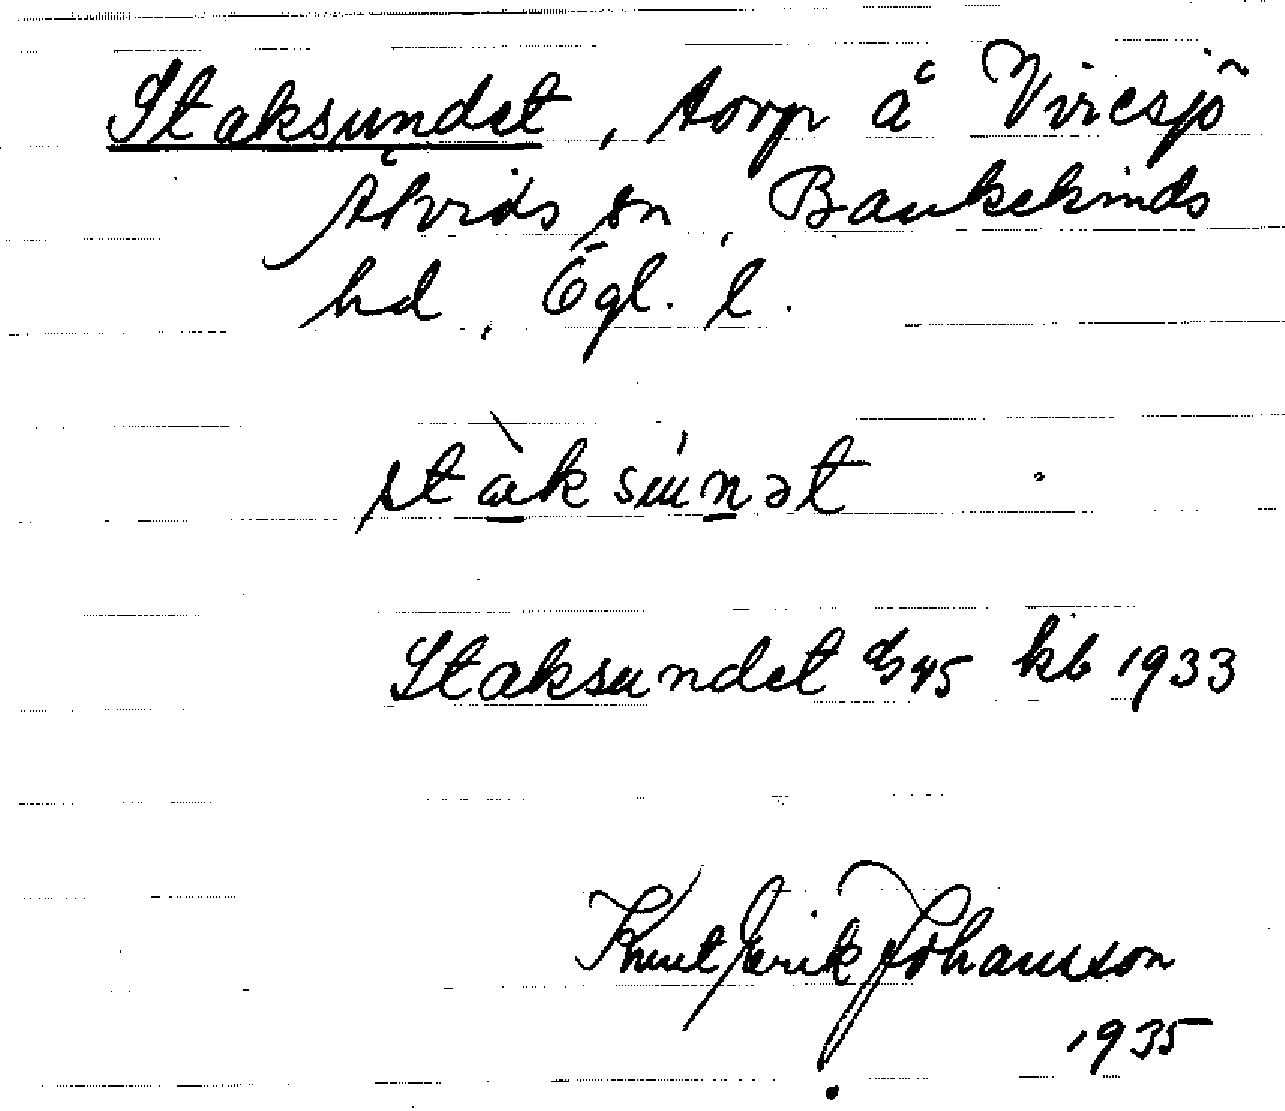 Staksundet, torp å Viresjö
Åtvids sn, Bankekinds
hd, Ögl. l.
stàksúnət
Staksundet G45 kb 1933
Knut Erik Johansson
1935